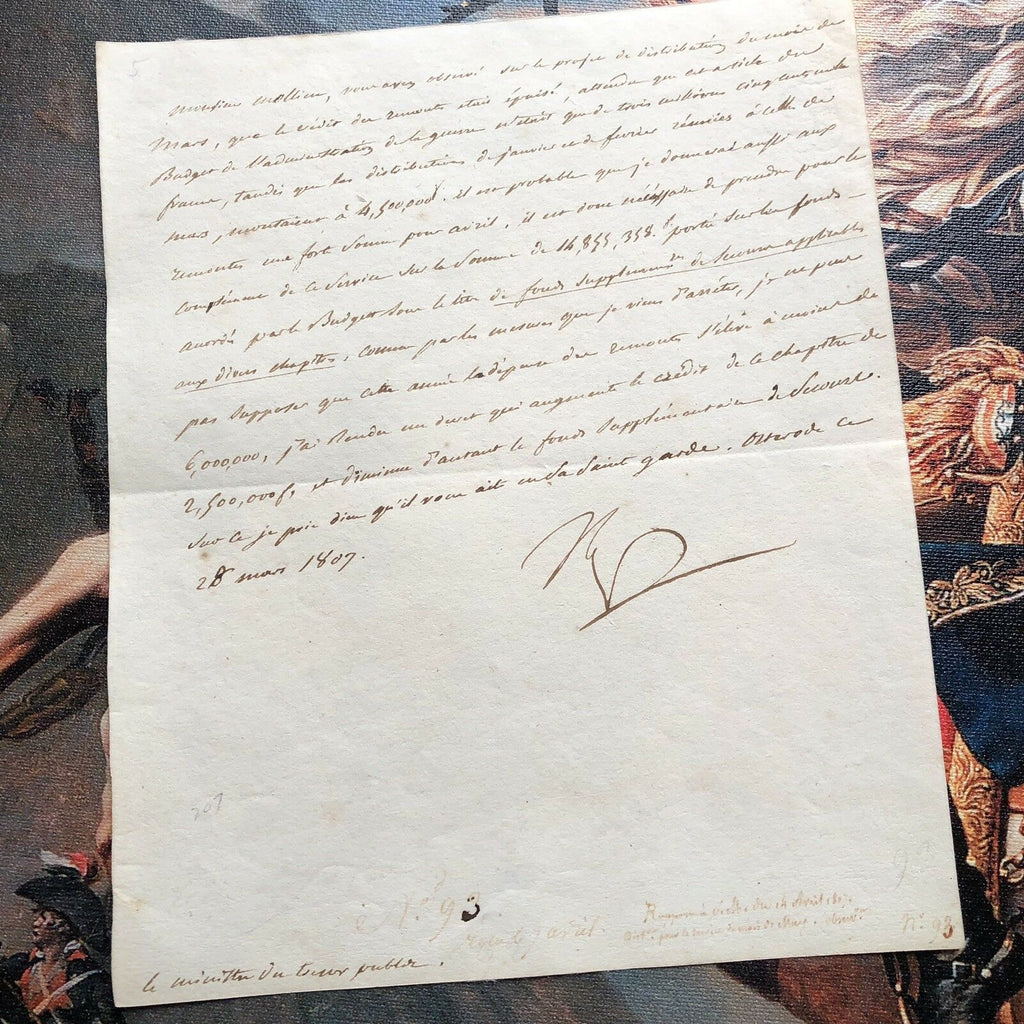 5
Monsieur Mollien, vous avez observé sur le projet de distribution du mois de
Mars, que le crédit des remonte était épuisé, attendu que cet article du
Budget de l'administration de la guerre n'était que de trois millions cinq cent mille
francs, tandis que les distributions de janvier et de fevrier réunies à celle de
mars, montaient à 4,500,000f. il est probable que je donnerai aussi aux
remontes une forte Somme pour avril, il est donc nécessaire de prendre pour le
complément de ce Service sur la Somme de 14,855,358.f porté sur les fonds
accordés par le Budget sous le titre de fonds supplémentres de Secours applicables
aux divers chapitres, comme par les mesures que je viens d'arrêter, je ne peux
pas supposer que cette année la dépense des remonte s'élève à moins de
6,000,000, j'ai rendu un decret qui augmente le crédit de ce chapitre de
2,500,000f, et diminue d'autant le fonds Supplémentaire de Secours.
Sur ce je prie dieu qu'il vous ait en Sa Saint garde. Osterode ce
28 mars 1807.
Np
207
9
No 93
avril.
du 14 Avril 1807.
pour le service du mois de Mars.
No 93
le ministre du tresor public.